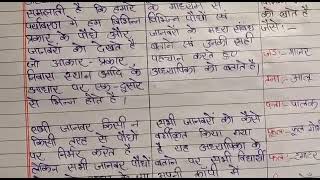 समझाती है कि हमारे
पर्यावरण में हम विभिन्न
प्रकार के पौधे और
जानवरों को देखते है
जो आकार-प्रकार
निवास स्थान आदि के
आधार पर एक-दूसरे
से भिन्न होते है।
के माध्यम से
विभिन्न पौधों एवं
जानवरों के मध्य संबंध
बताने एवं उनकी सही
पहचान करते हुए
अध्यापिका को बताते है।
जैसे:-
सभी जानवर किसी न
किसी तरह से पौधों
पर निर्भर करते है
लेकिन सभी जानवर पौधों
सभी जानवरों को कैसे
वर्गीकृत किया गया
है यह अध्यापिका के
बताने पर सभी विद्यार्थी
अपनी कापी में